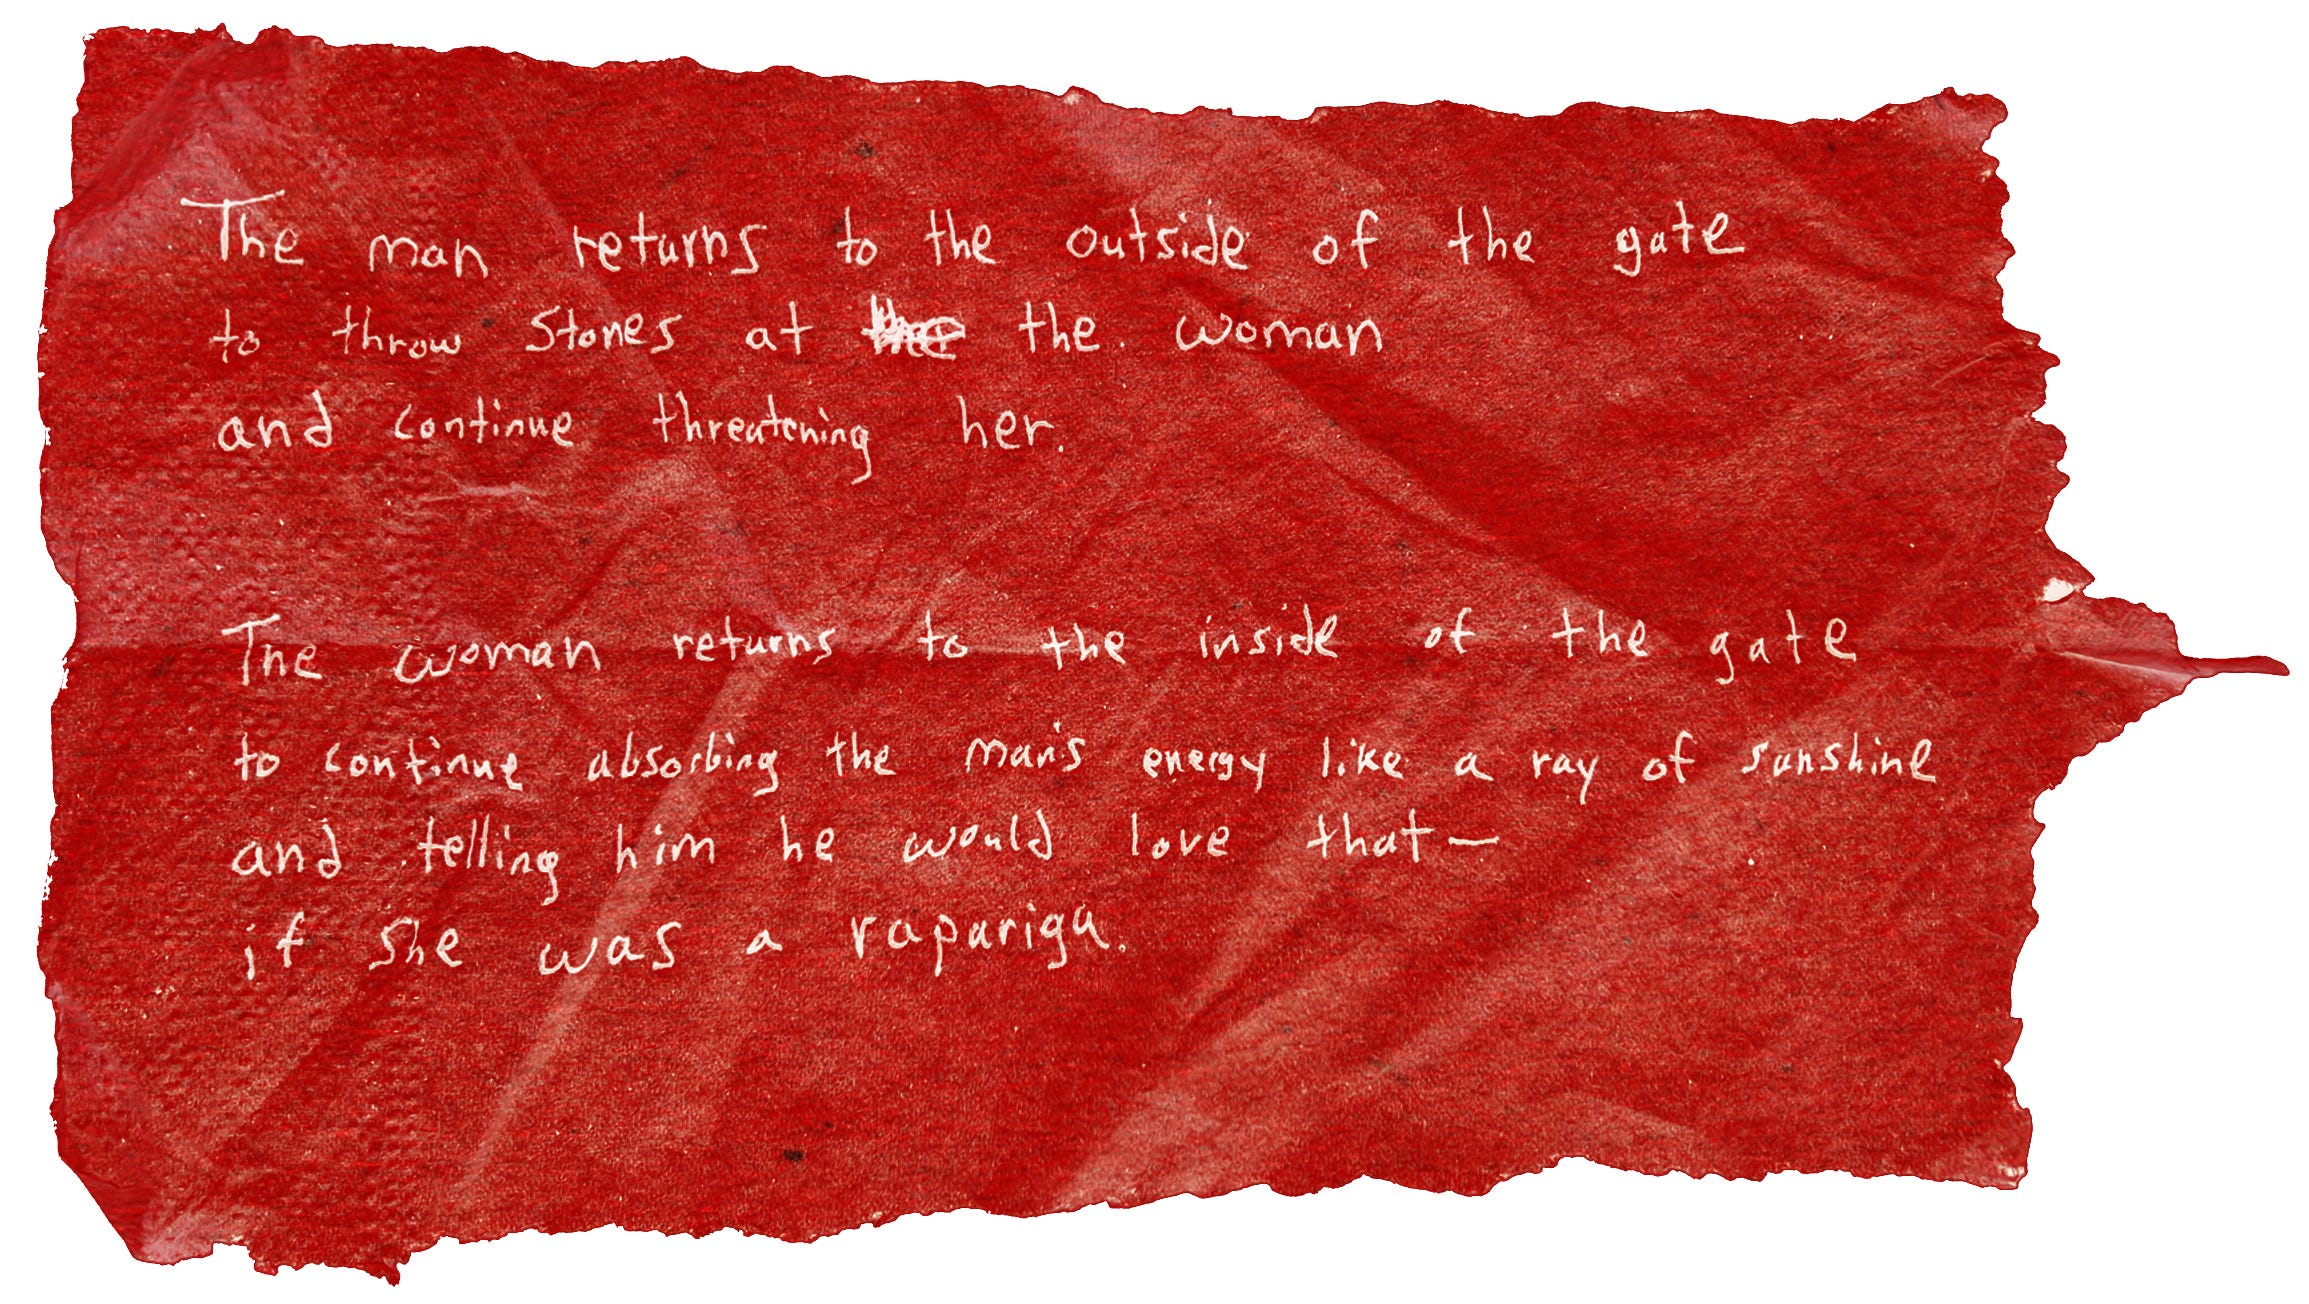 The man returns to the outside of the gate
to throw stones at the woman
and continue threatening her.
The woman returns to the inside of the gate
to continue absorbing the man's energy like a ray of sunshine
and telling him he would love that—
if she was a rapariga.